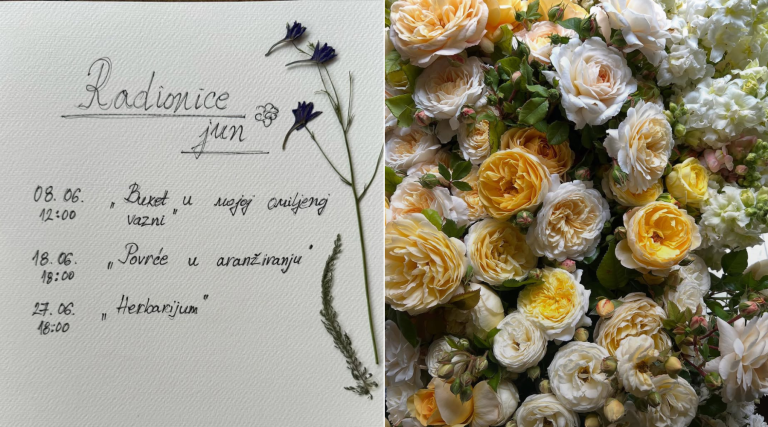 Radionice
jun
08.06. „Buket u mojoj omiljenoj
12:00 vazni"
18.06. „Povrće u aranžiranju"
18:00
27.06. „Herbarijum"
18:00